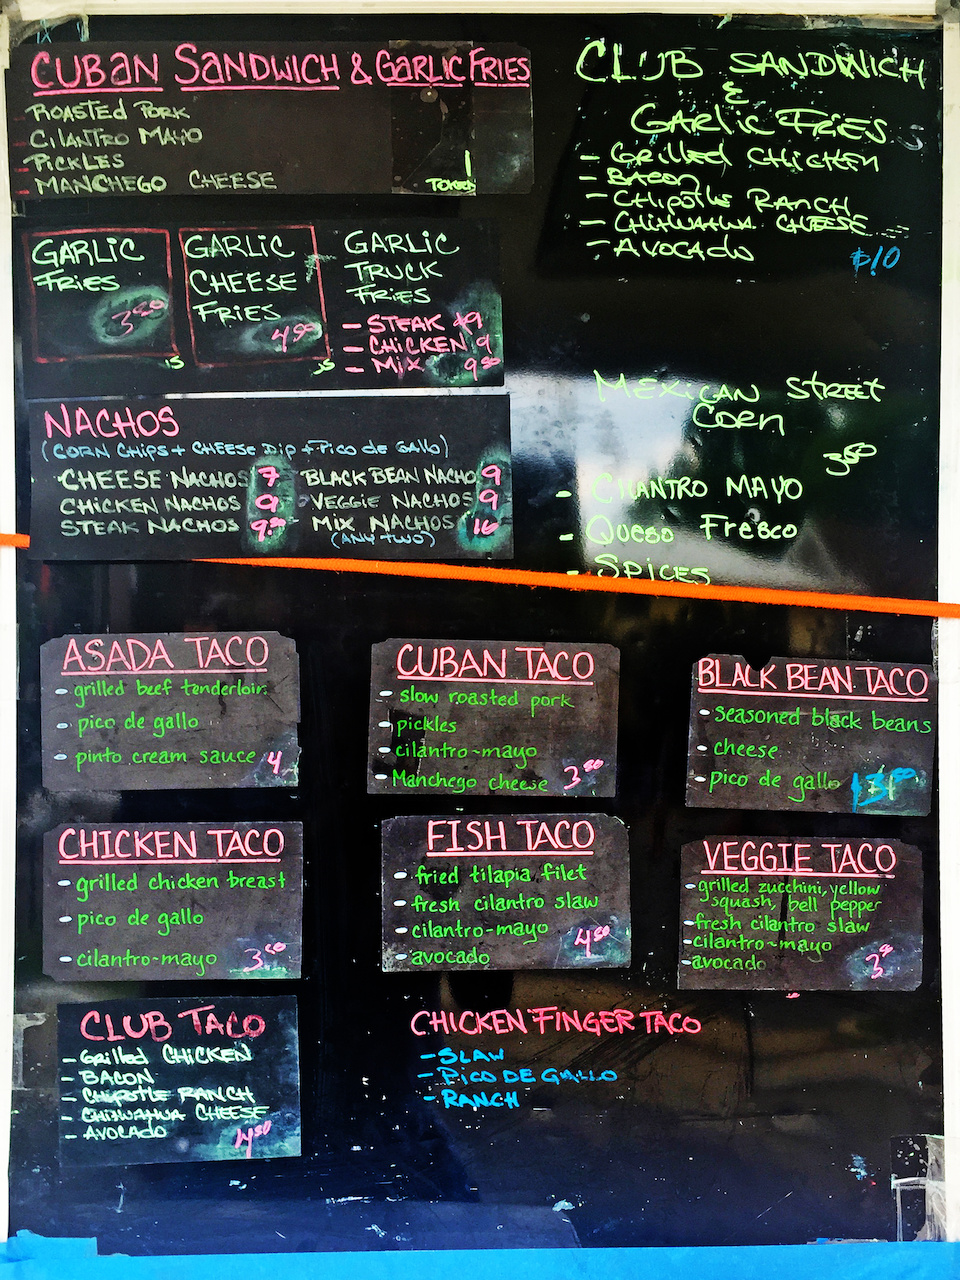 CUBAN SANDWICH & GARLIC FRIES
ROASTED PORK
CILANTRO MAYO
PICKLES
MANCHEGO CHEESE
CLUB SANDWICH
&
GARLIC FRIES
- GRILLED CHICKEN
- BACON
- CHIPOTLE RANCH
- CHIHUAHUA CHEESE
- AVOCADO
$10
GARLIC
FRIES
3.50
GARLIC
CHEESE
FRIES
4.50
GARLIC
TRUCK
FRIES
- STEAK $9
- CHICKEN 9
- MIX 9.50
NACHOS
(CORN CHIPS + CHEESE DIP + PICO DE GALLO)
CHEESE NACHOS 7
CHICKEN NACHOS 9
STEAK NACHOS 9.50
BLACK BEAN NACHO 9
VEGGIE NACHOS 9
MIX NACHOS 10
(ANY TWO)
MEXICAN STREET
CORN
3.50
- CILANTRO MAYO
- QUESO FRESCO
- SPICES
ASADA TACO
- grilled beef tenderloin
- pico de gallo
- pinto cream sauce 4
CUBAN TACO
- slow roasted pork
- pickles
- cilantro-mayo
- Manchego cheese 3.50
BLACK BEAN TACO
- seasoned black beans
- cheese
- pico de gallo
CHICKEN TACO
- grilled chicken breast
- pico de gallo
- cilantro-mayo
FISH TACO
- fried tilapia filet
- fresh cilantro slaw
- cilantro-mayo
- avocado 4.50
VEGGIE TACO
- grilled zucchini, yellow
squash, bell pepper
- fresh cilantro slaw
- cilantro-mayo
- avocado
CLUB TACO
- GRILLED CHICKEN
- BACON
- CHIPOTLE RANCH
- CHIHUAHUA CHEESE
- AVOCADO
4.50
CHICKEN FINGER TACO
- SLAW
- PICO DE GALLO
- RANCH